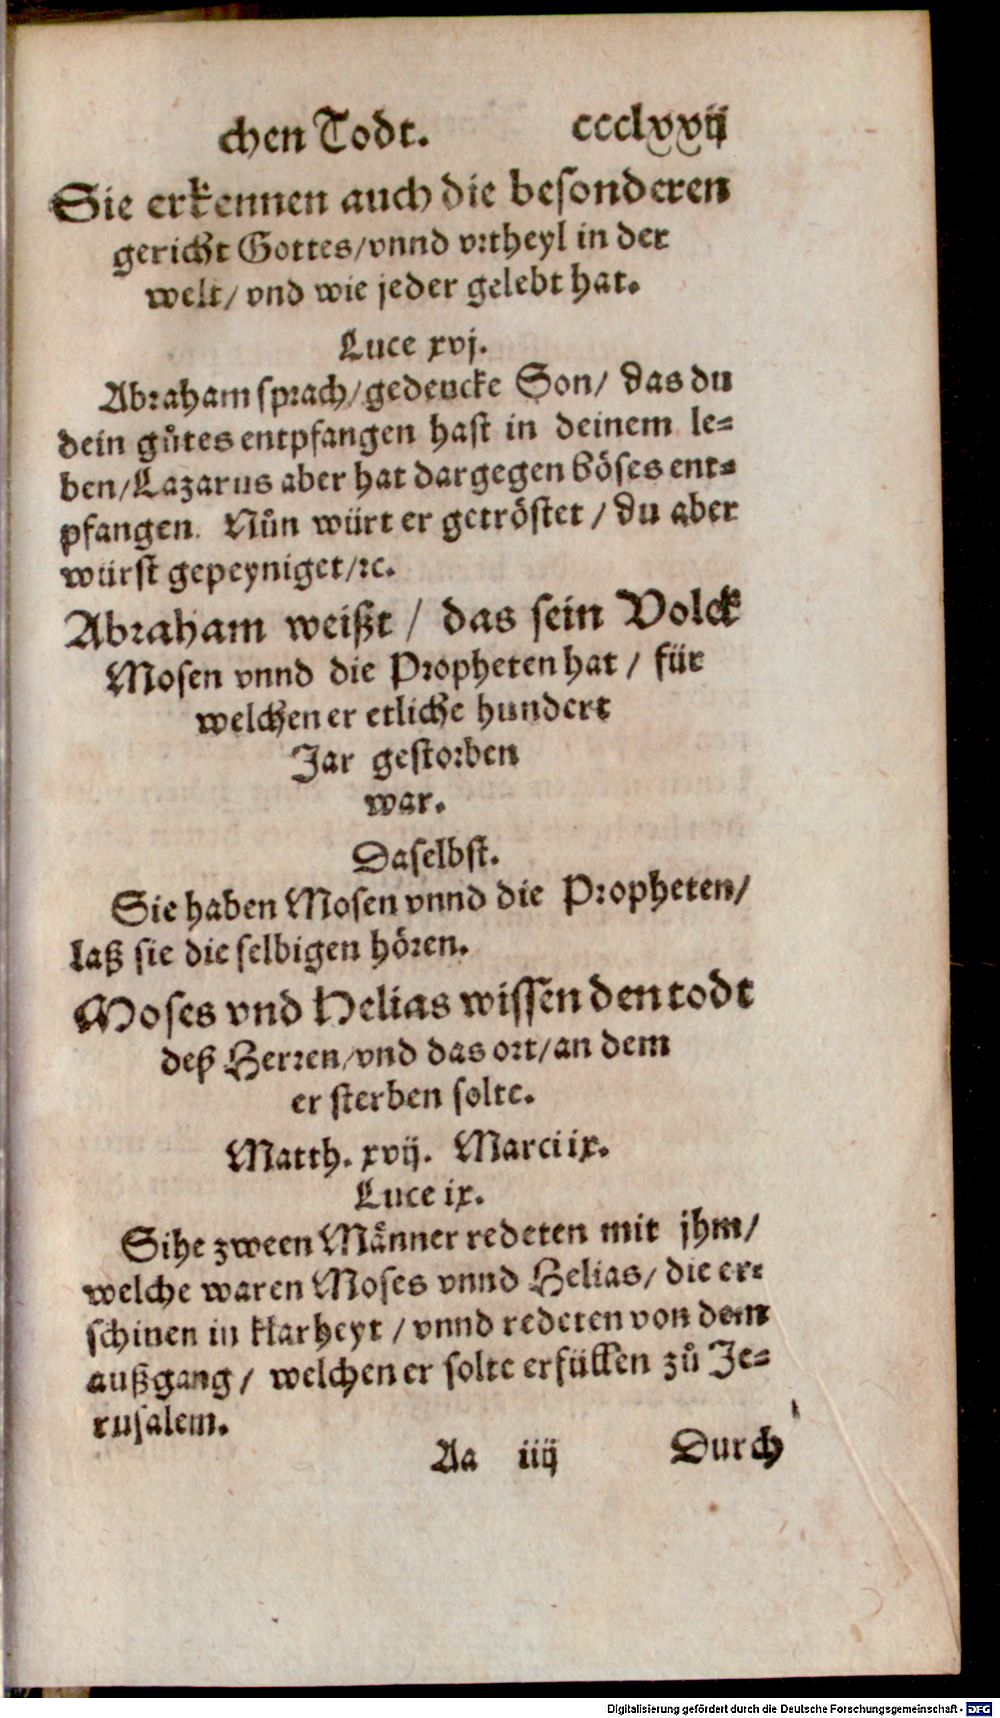 chen Todt. ccclxxij
Sie erkennen auch die besonderen
gericht Gottes/vnnd vrtheyl in der
welt/ vnd wie jeder gelebt hat.
Luce xvj.
Abraham sprach/gedencke Son/ das du
dein gůtes entpfangen hast in deinem le-
ben/Lazarus aber hat dargegen böses ent-
pfangen. Nůn würt er getröstet / du aber
würst gepeyniget/ꝛc.
Abraham weißt / das sein Volck
Mosen vnnd die Propheten hat / für
welchen er etliche hundert
Jar gestorben
war.
Daselbst.
Sie haben Mosen vnnd die Propheten/
laß sie die selbigen hören.
Moses vnd Helias wissen den todt
deß Herren/vnd das ort/an dem
er sterben solte.
Matth. xvij. Marci ix.
Luce ix.
Sihe zween Männer redeten mit jhm/
welche waren Moses vnnd Helias/ die er-
schinen in klarheyt / vnnd redeten von dem
außgang / welchen er solte erfüllen zů Je-
rusalem.
Aa iiij Durch
Digitalisierung gefördert durch die Deutsche Forschungsgemeinschaft - DFG